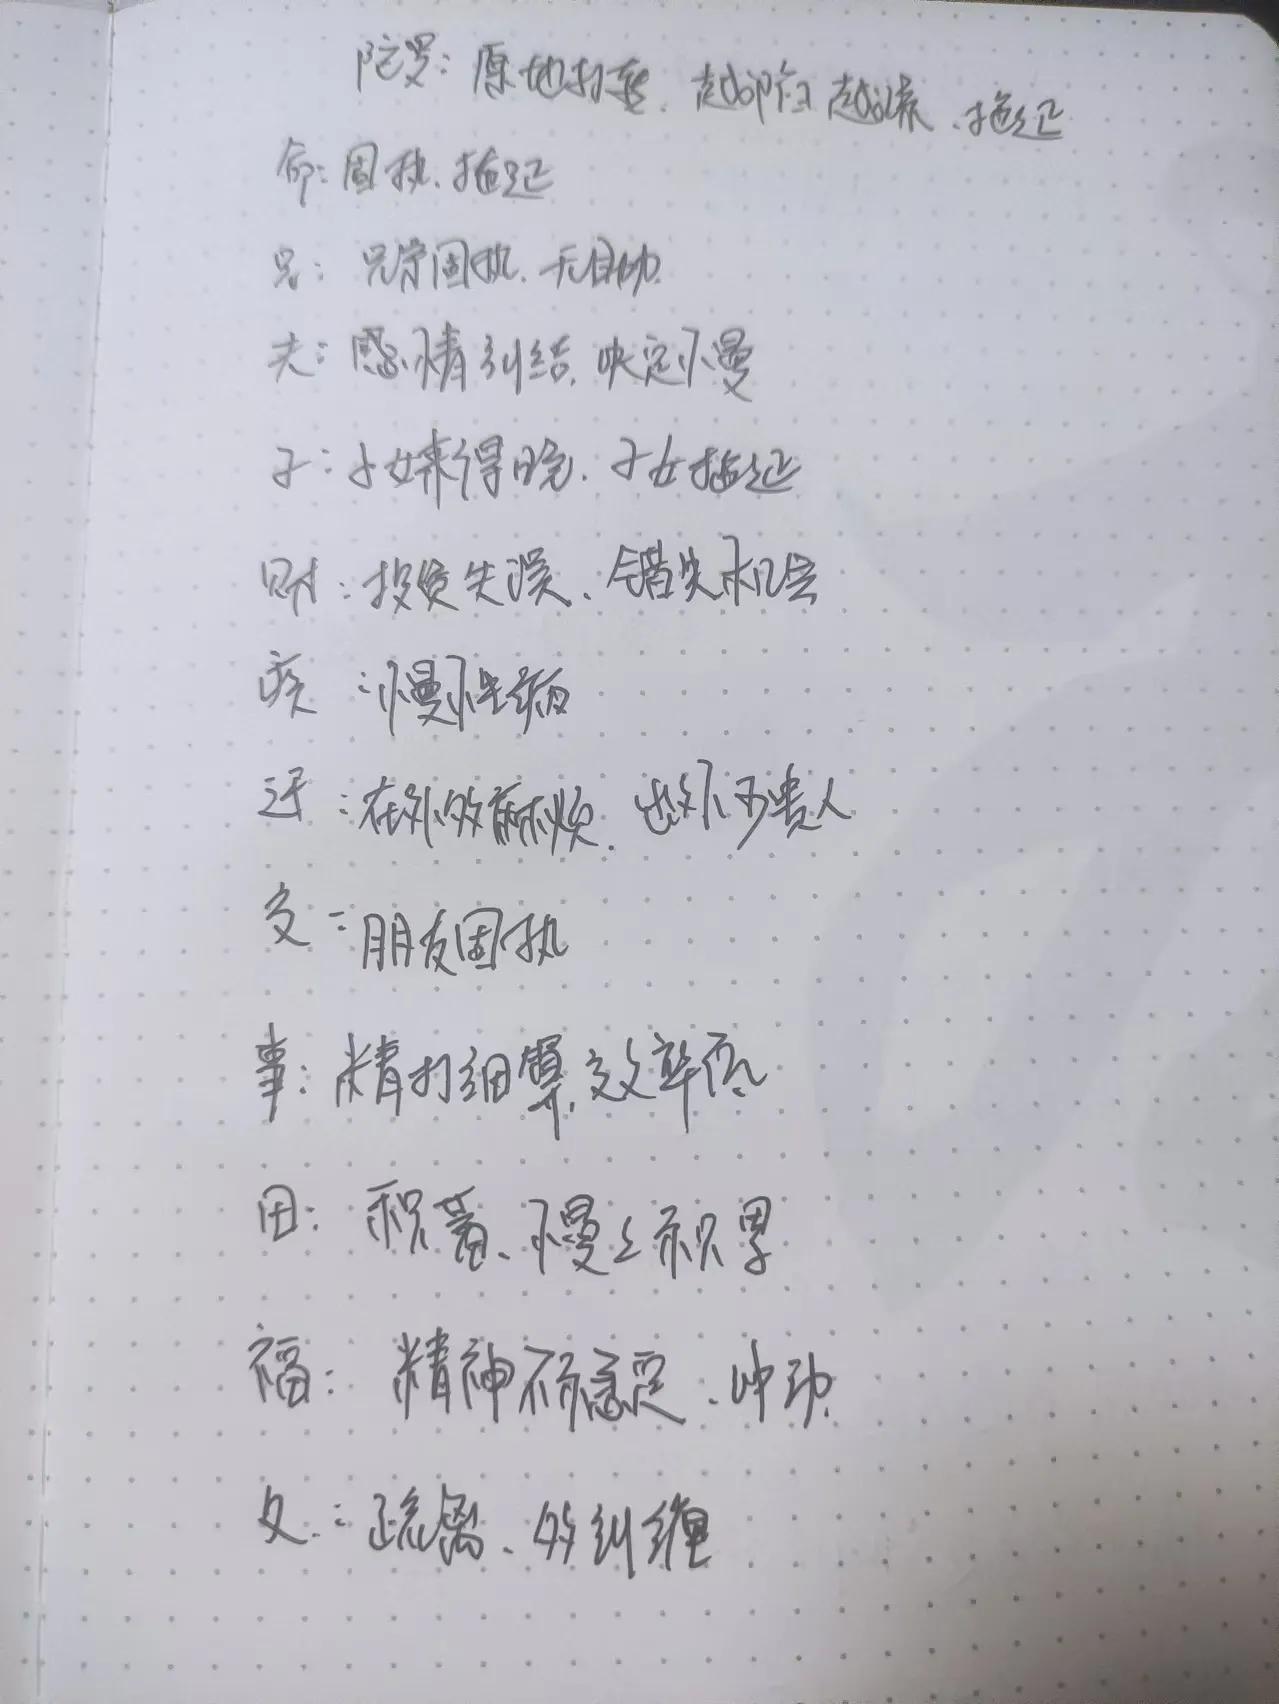 陀罗：原地打转、越陷越深、拖延
命：固执、拖延
兄：兄弟固执、无自助
夫：感情纠结、决定慢
子：子女来得晚、子女拖延
财：投资失误、错失机会
疾：慢性病
迁：在外多麻烦、出外不贵人
交：朋友固执
事：精打细算、效率低
田：积蓄、慢々积累
福：精神不稳定、冲动
父：疏离、多纠缠